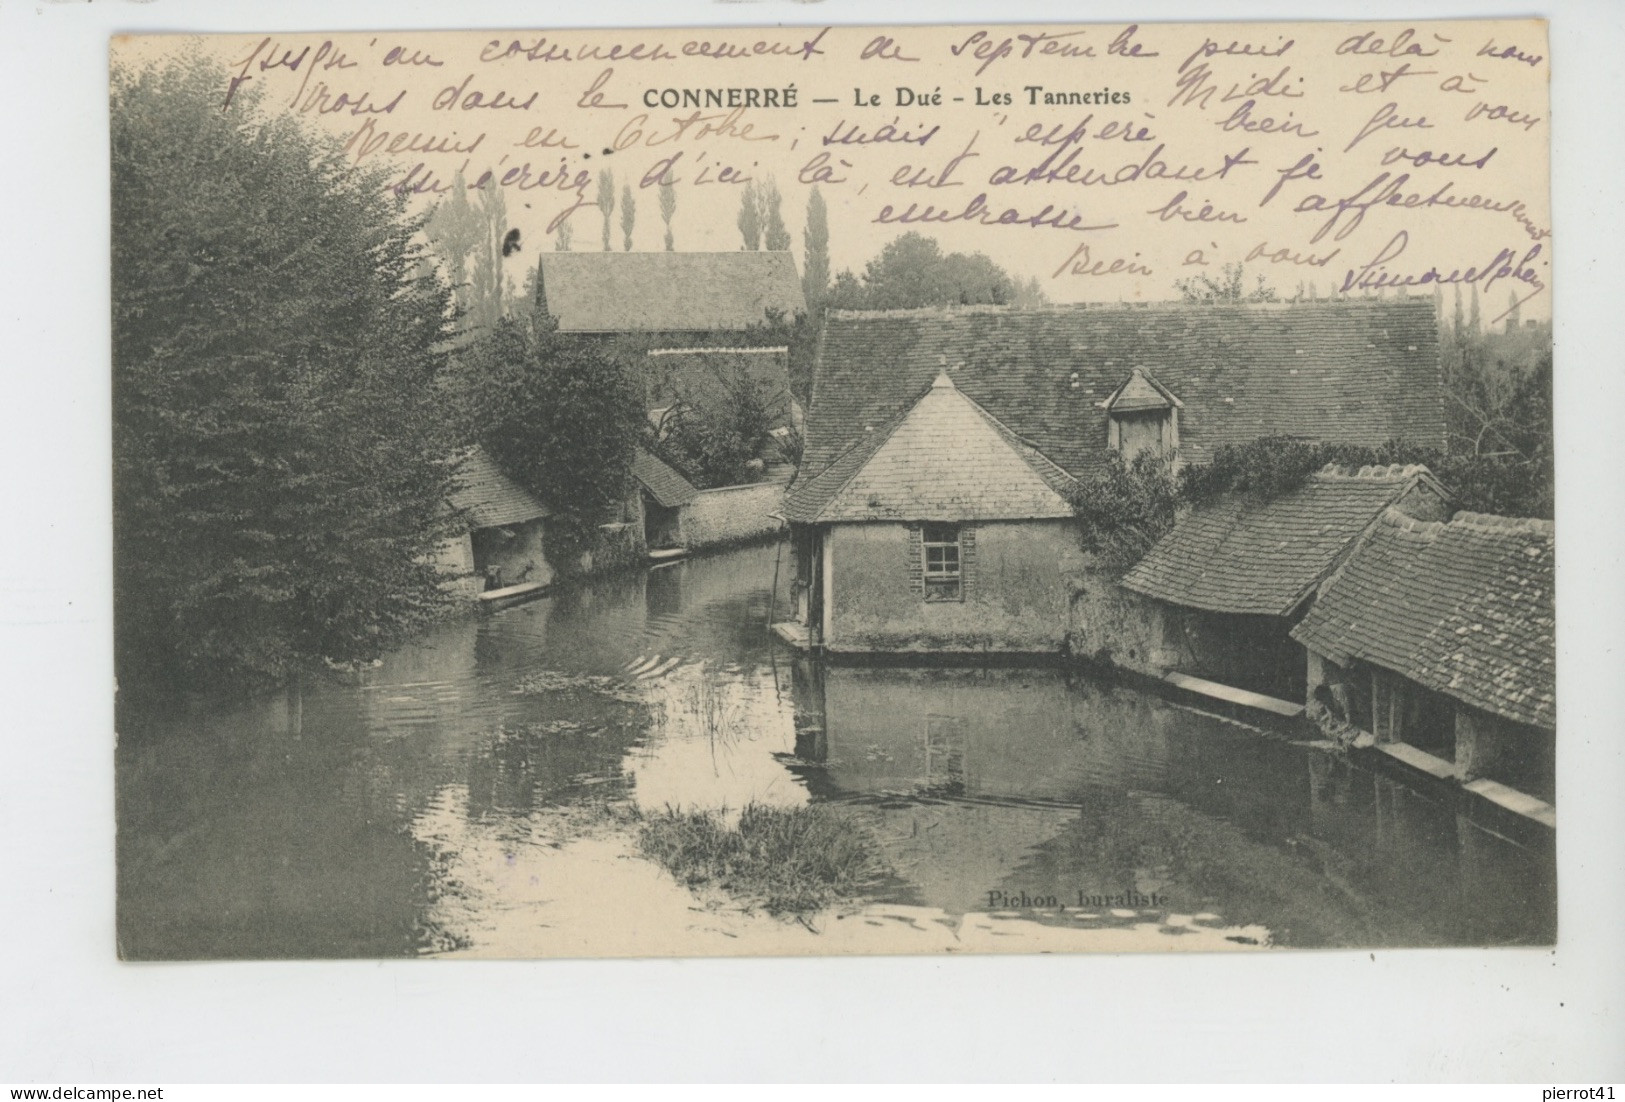 jusqu'au commencement de Septembre puis delà nous
irons dans le Midi et à
CONNERRÉ — Le Dué - Les Tanneries
Reims en Octobre ; mais j'espère bien que vous
m'écrirez d'ici là, en attendant je vous
embrasse bien affectueusement
Bien à vous Simone
Pichon, buraliste
www.delcampe.net
pierrot41